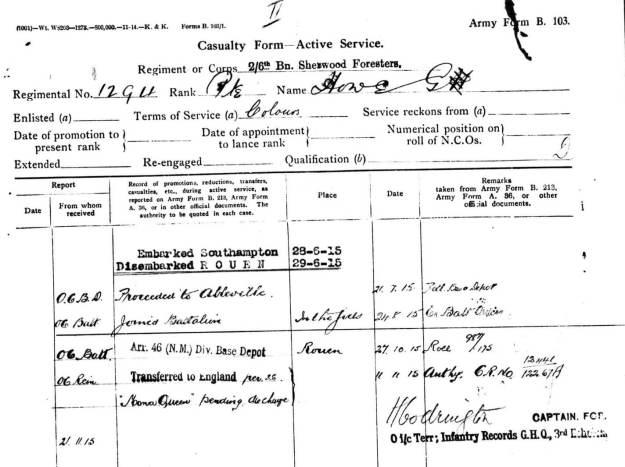 II
(1001)—Wt. W5203—1275.—500,000.—11-14.—K. & K. Forms B. 103/1. Army Form B. 103.
Casualty Form—Active Service.
Regiment or Corps 2/6th Bn. Sherwood Foresters.
Regimental No. Rank Pte Name Howe G
Enlisted (a) Terms of Service (a) Colours Service reckons from (a)
Date of promotion to present rank } Date of appointment to lance rank } Numerical position on roll of N.C.Os. }
Extended Re-engaged Qualification (b)
Report Record of promotions, reductions, transfers, casualties, etc., during active service, as reported on Army Form B. 213, Army Form A. 36, or in other official documents. The authority to be quoted in each case. Place Date Remarks taken from Army Form B. 213, Army Form A. 36, or other official documents.
Date From whom received
Embarked Southampton 28-6-15
Disembarked ROUEN 29-6-15
O.C.B.D. Proceeded to 21.7.15 Depot
OC Batt Joined Battalion In the 24.8.15
OC Batt. Arr. 46 (N.M.) Div. Base Depot Rouen 27.10.15 Roll
OC Transferred to England per 11.11.15 Authy. C.R. No. 12267A
"Mona Queen" pending discharge
21.11.15
CAPTAIN. FOR.
O i/c Terr; Infantry Records G.H.Q., 3rd Echelon